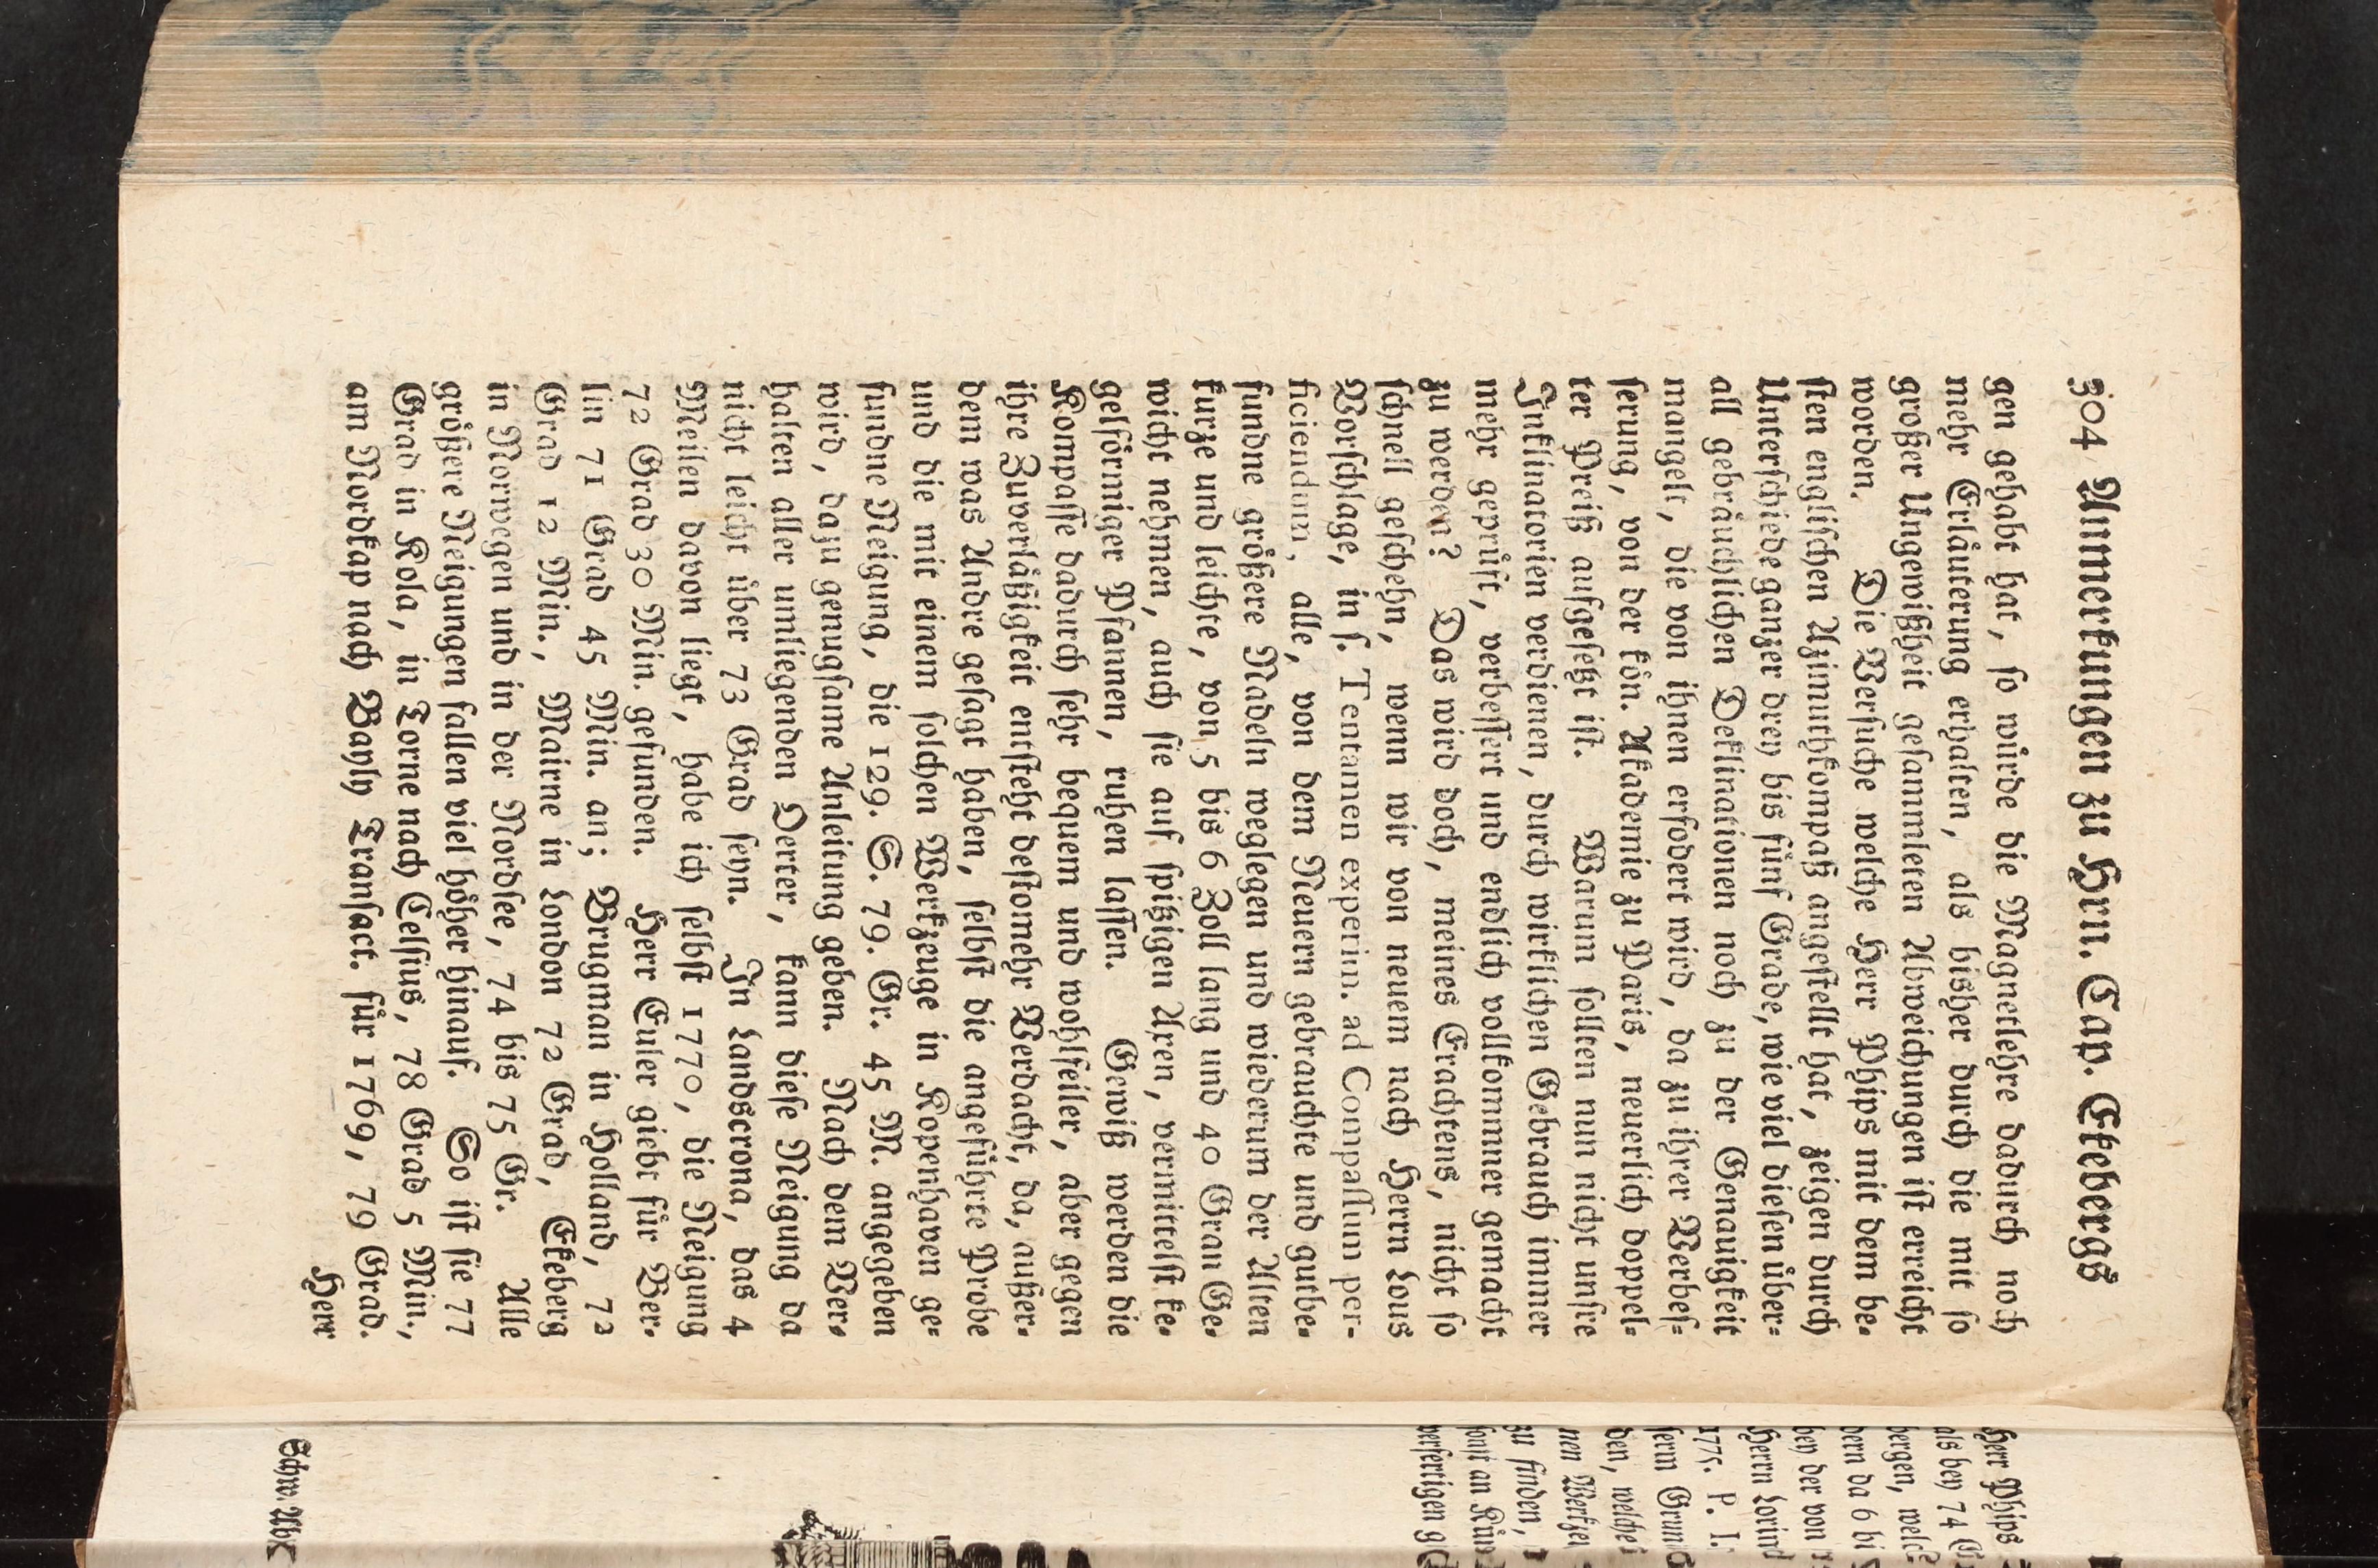 304 Anmerkungen zu Hrn. Cap. Ekebergs
gen gehabt hat, so würde die Magnetlehre dadurch noch
mehr Erläuterung erhalten, als bisher durch die mit so
großer Ungewißheit gesammleten Abweichungen ist erreicht
worden. Die Versuche welche Herr Phips mit dem be-
sten englischen Azimuthkompaß angestellt hat, zeigen durch
Unterschiede ganzer drey bis fünf Grade, wie viel diesen über-
all gebräuchlichen Deklinationen noch zu der Genauigkeit
mangelt, die von ihnen erfodert wird, da zu ihrer Verbes-
serung, von der kön. Akademie zu Paris, neuerlich doppel-
ter Preiß aufgesetzt ist. Warum sollten nun nicht unsre
Inklinatorien verdienen, durch wirklichen Gebrauch immer
mehr geprüft, verbessert und endlich vollkommner gemacht
zu werden? Das wird doch, meines Erachtens, nicht so
schnell geschehn, wenn wir von neuem nach Herrn Lous
Vorschlage, in s. Tentamen experim. ad Compassum per-
ficiendum, alle, von dem Neuern gebrauchte und gutbe-
fundne größere Nadeln weglegen und wiederum der Alten
kurze und leichte, von 5 bis 6 Zoll lang und 40 Gran Ge-
wicht nehmen, auch sie auf spitzigen Axen, vermittelst ke-
gelförmiger Pfannen, ruhen lassen. Gewiß werden die
Kompasse dadurch sehr bequem und wohlfeiler, aber gegen
ihre Zuverläßigkeit entsteht destomehr Verdacht, da, außer-
dem was Andre gesagt haben, selbst die angeführte Probe
und die mit einem solchen Werkzeuge in Kopenhaven ge-
fundne Neigung, die 129. S. 79. Gr. 45 M. angegeben
wird, dazu genugsame Anleitung geben. Nach dem Ver-
halten aller umliegenden Oerter, kann diese Neigung da
nicht leicht über 73 Grad seyn. In Landscrona, das 4
Meilen davon liegt, habe ich selbst 1770, die Neigung
72 Grad 30 Min. gefunden. Herr Euler giebt für Ber-
lin 71 Grad 45 Min. an; Brugman in Holland, 72
Grad 12 Min., Mairne in London 72 Grad, Ekeberg
in Norwegen und in der Nordsee, 74 bis 75 Gr. Alle
größere Neigungen fallen viel höher hinauf. So ist sie 77
Grad in Kola, in Torne nach Celsius, 78 Grad 5 Min.,
am Nordkap nach Bayly Transact. für 1769, 79 Grad.
Herr
Herr Phips
als bey 74 G
bergen, welc
dern da 6 bi
bey der von
Herrn Lorind
1775. P. I.
serm Grund
den, welche
nen Werkzeu
zu finden,
sonst an Kün
verfertigen g
Schw. Abh